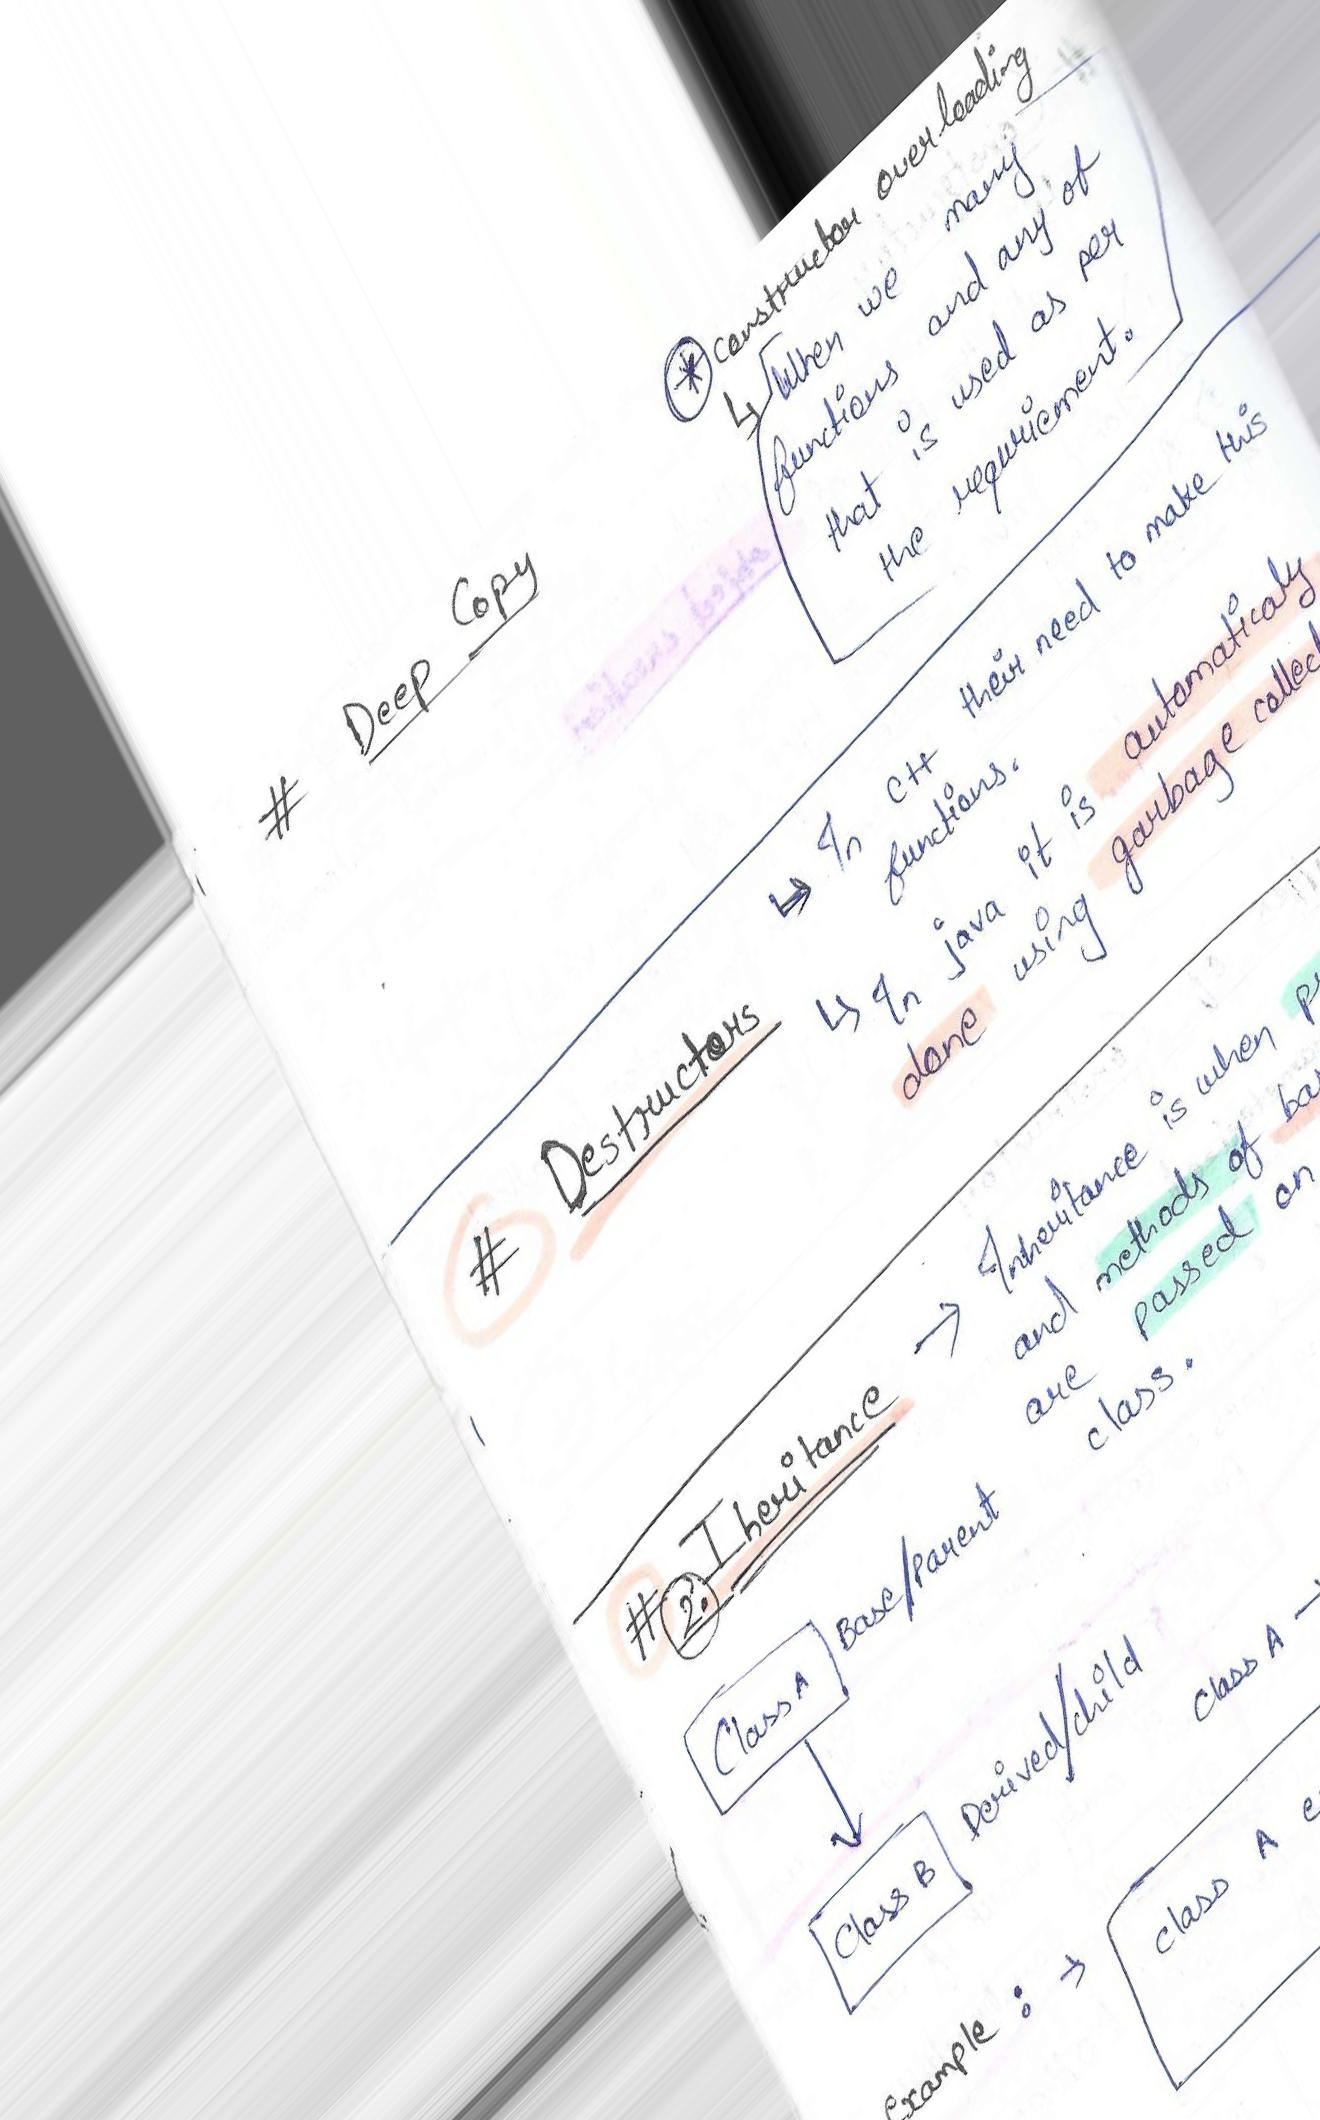 * constructor overloading
↳ When we many
functions and any of
that is used as per
the requriement.
# Deep Copy
↳ In c++ their need to make this
functions.
# Destructors
↳ In java it is automaticaly
done using garbage collect
# 2. Iheritance
→ Inheritance is when
and methods of
are passed on
class.
Class A Base/Parent
Class B Derived/child
Class A →
Example : → class A